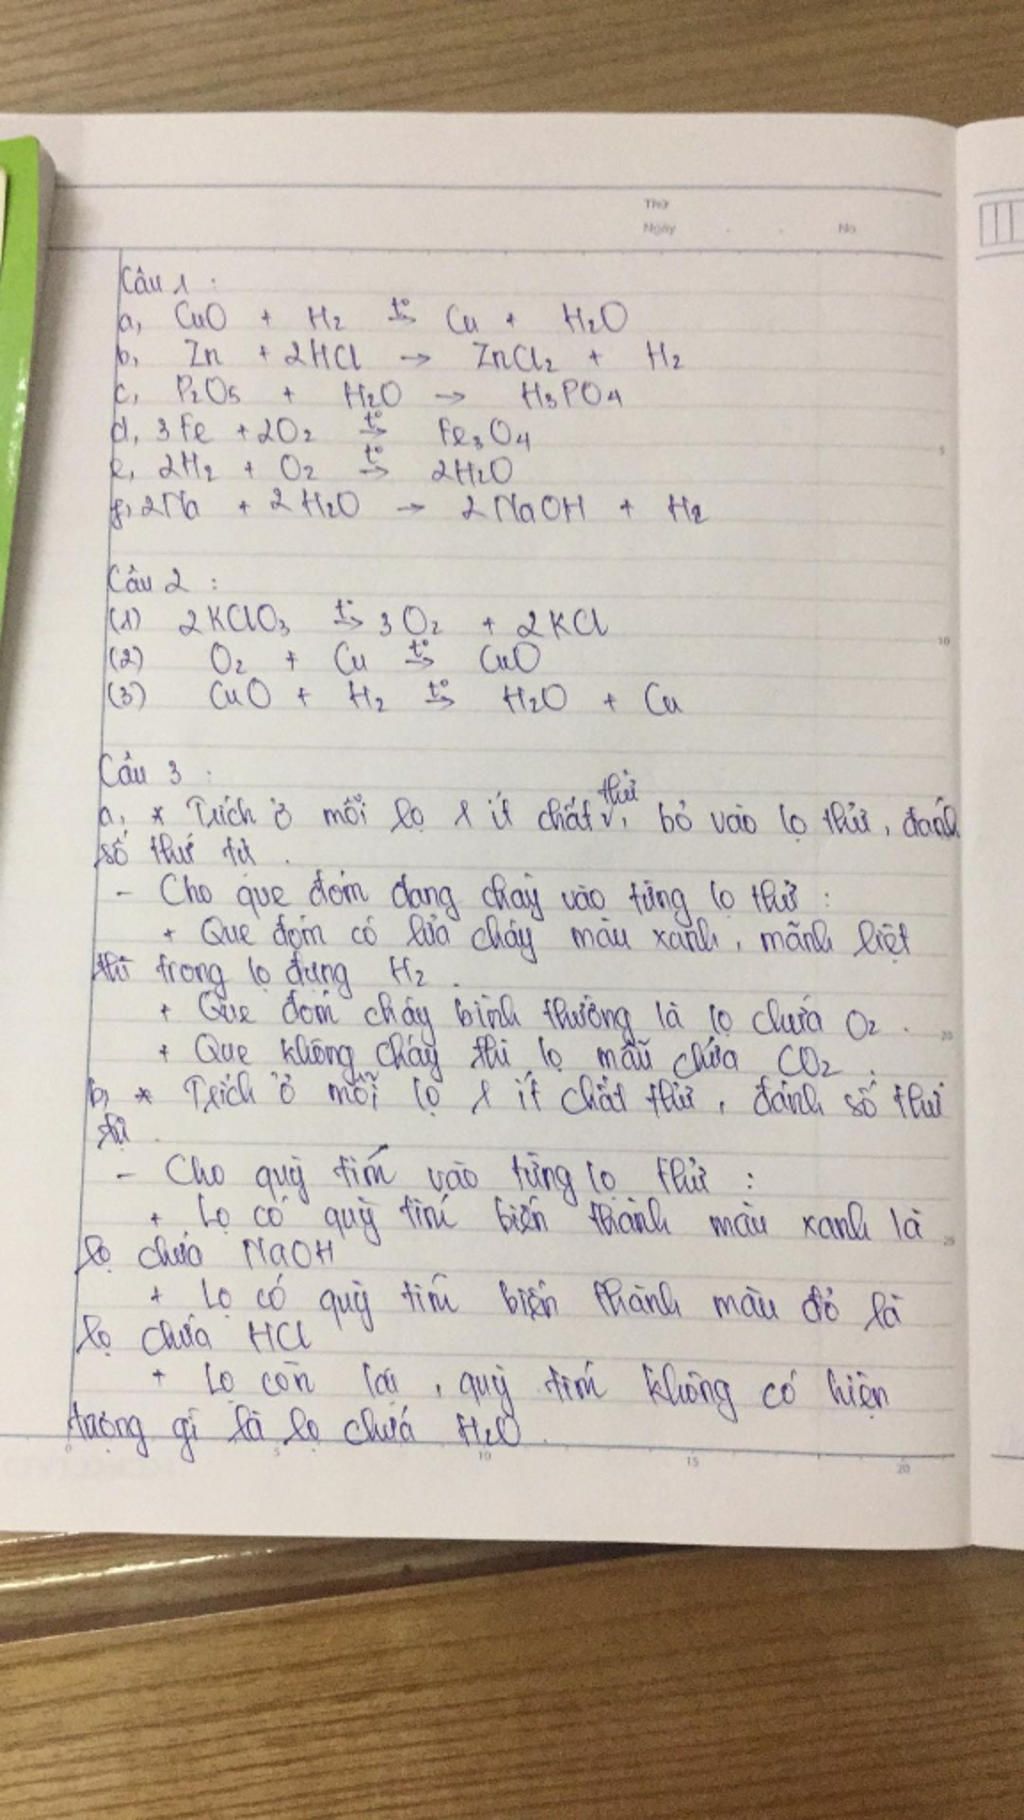 Thứ
Ngày No
Câu 1 :
a, CuO + H2 t°→ Cu + H2O
b, Zn + 2HCl → ZnCl2 + H2
c, P2O5 + H2O → H3PO4
d, 3Fe + 2O2 t°→ Fe3O4
e, 2H2 + O2 t°→ 2H2O
g, 2Na + 2H2O → 2NaOH + H2
Câu 2 :
(1) 2KClO3 t°→ 3O2 + 2KCl
(2) O2 + Cu t°→ CuO
(3) CuO + H2 t°→ H2O + Cu
Câu 3 :
a, * Trích ở mỗi lọ 1 ít chất thử, bỏ vào lọ thử, đánh
số thứ tự.
- Cho que đóm đang cháy vào từng lọ thử :
+ Que đóm có lửa cháy màu xanh, mãnh liệt
thì trong lọ đựng H2.
+ Que đóm cháy bình thường là lọ chứa O2.
+ Que không cháy thì lọ mẫu chứa CO2.
b, * Trích ở mỗi lọ 1 ít chất thử, đánh số thứ
tự.
- Cho quỳ tím vào từng lọ thử :
+ Lọ có quỳ tím biến thành màu xanh là
lọ chứa NaOH
+ Lọ có quỳ tím biến thành màu đỏ là
lọ chứa HCl
+ Lọ còn lại, quỳ tím không có hiện
tượng gì là lọ chứa H2O.
5
10
20
25
0 5 10 15 20